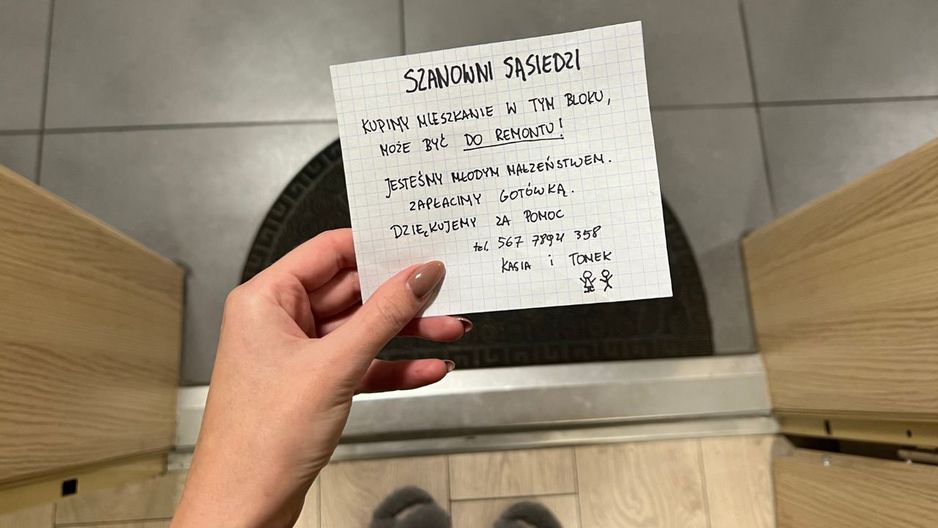 SZANOWNI SĄSIEDZI
KUPIMY MIESZKANIE W TYM BLOKU,
MOŻE BYĆ DO REMONTU!
JESTEŚMY MŁODYM MAŁŻEŃSTWEM.
ZAPŁACIMY GOTÓWKĄ.
DZIĘKUJEMY ZA POMOC
tel. 567 7894 358
KASIA i TOMEK